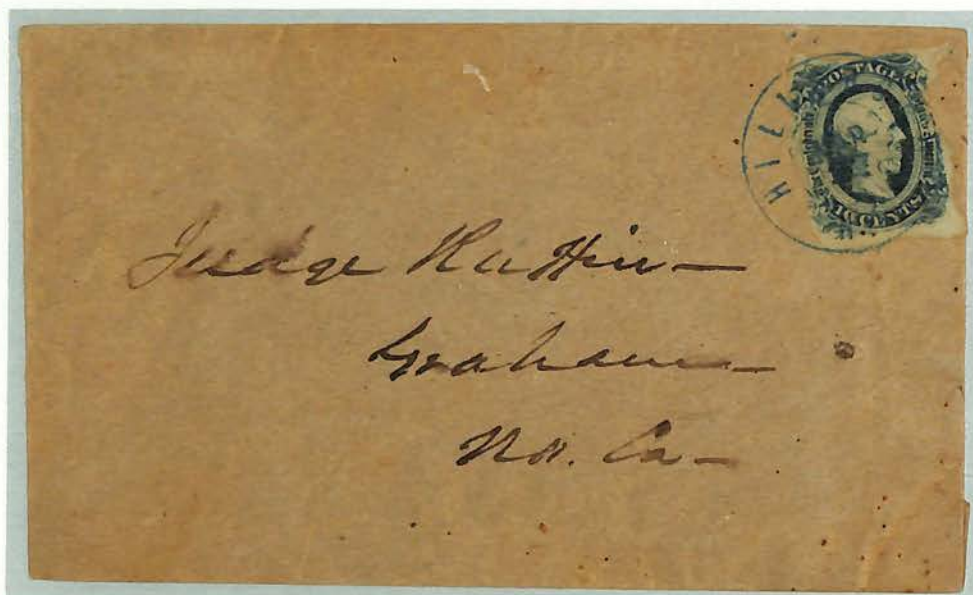 HILL
POSTAGE
Judge Ruffin—
Graham—
No. Ca—